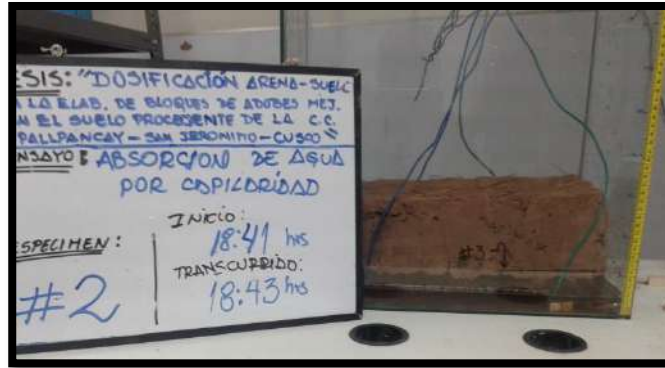 ESIS: "DOSIFICACIÓN ARENA-SUELO
A LA ELAB. DE BLOQUES DE ADOBES MEJ.
N EL SUELO PROCEDENTE DE LA C.C.
PALLPANCAY - SAN JERONIMO - CUSCO"
NSAYO: ABSORCION DE AGUA
POR CAPILARIDAD
ESPECIMEN:
#2
INICIO:
18:41 hrs
TRANSCURRIDO:
18:43 hrs
#3